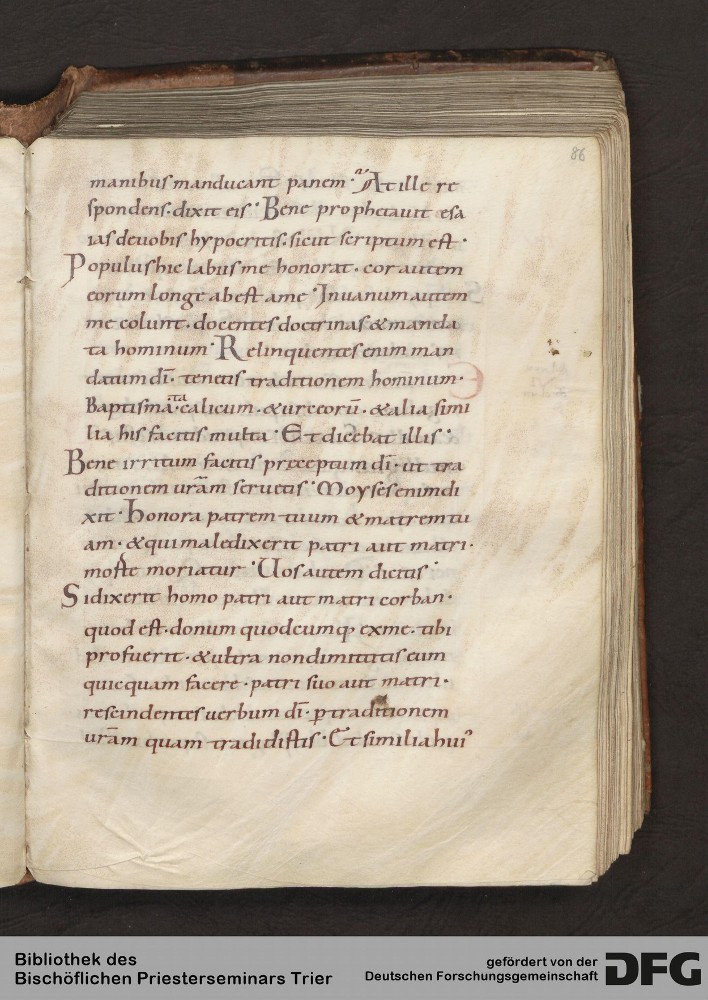 86
manibus manducant panem · At ille re
spondens · dixit eis · Bene prophetauit esa
ias deuobis hypocritis · sicut scriptum est ·
Populus hic labiis me honorat · cor autem
eorum longe abest ame · Inuanum autem
me colunt · docentes doctrinas & manda
ta hominum · Relinquentes enim man
datum dī · tenetis traditionem hominum ·
Baptismata · calicum · & urceorū · & alia simi
lia his facitis multa · Et dicebat illis ·
Bene irritum facitis preceptum dī · ut tra
ditionem urām seruetis · Moyses enim di
xit · Honora patrem tuum & matrem tu
am · & qui maledixerit patri aut matri ·
morte moriatur · Uos autem dicitis ·
Si dixerit homo patri aut matri corban ·
quod est · donum quodcumq; exme · tibi
profuerit · & ultra non dimittitis eum
quicquam facere · patri suo aut matri ·
rescindentes uerbum dī · ꝑ traditionem
urām quam tradidistis · Et similia hui᾿
Bibliothek des
Bischöflichen Priesterseminars Trier
gefördert von der
Deutschen Forschungsgemeinschaft
DFG